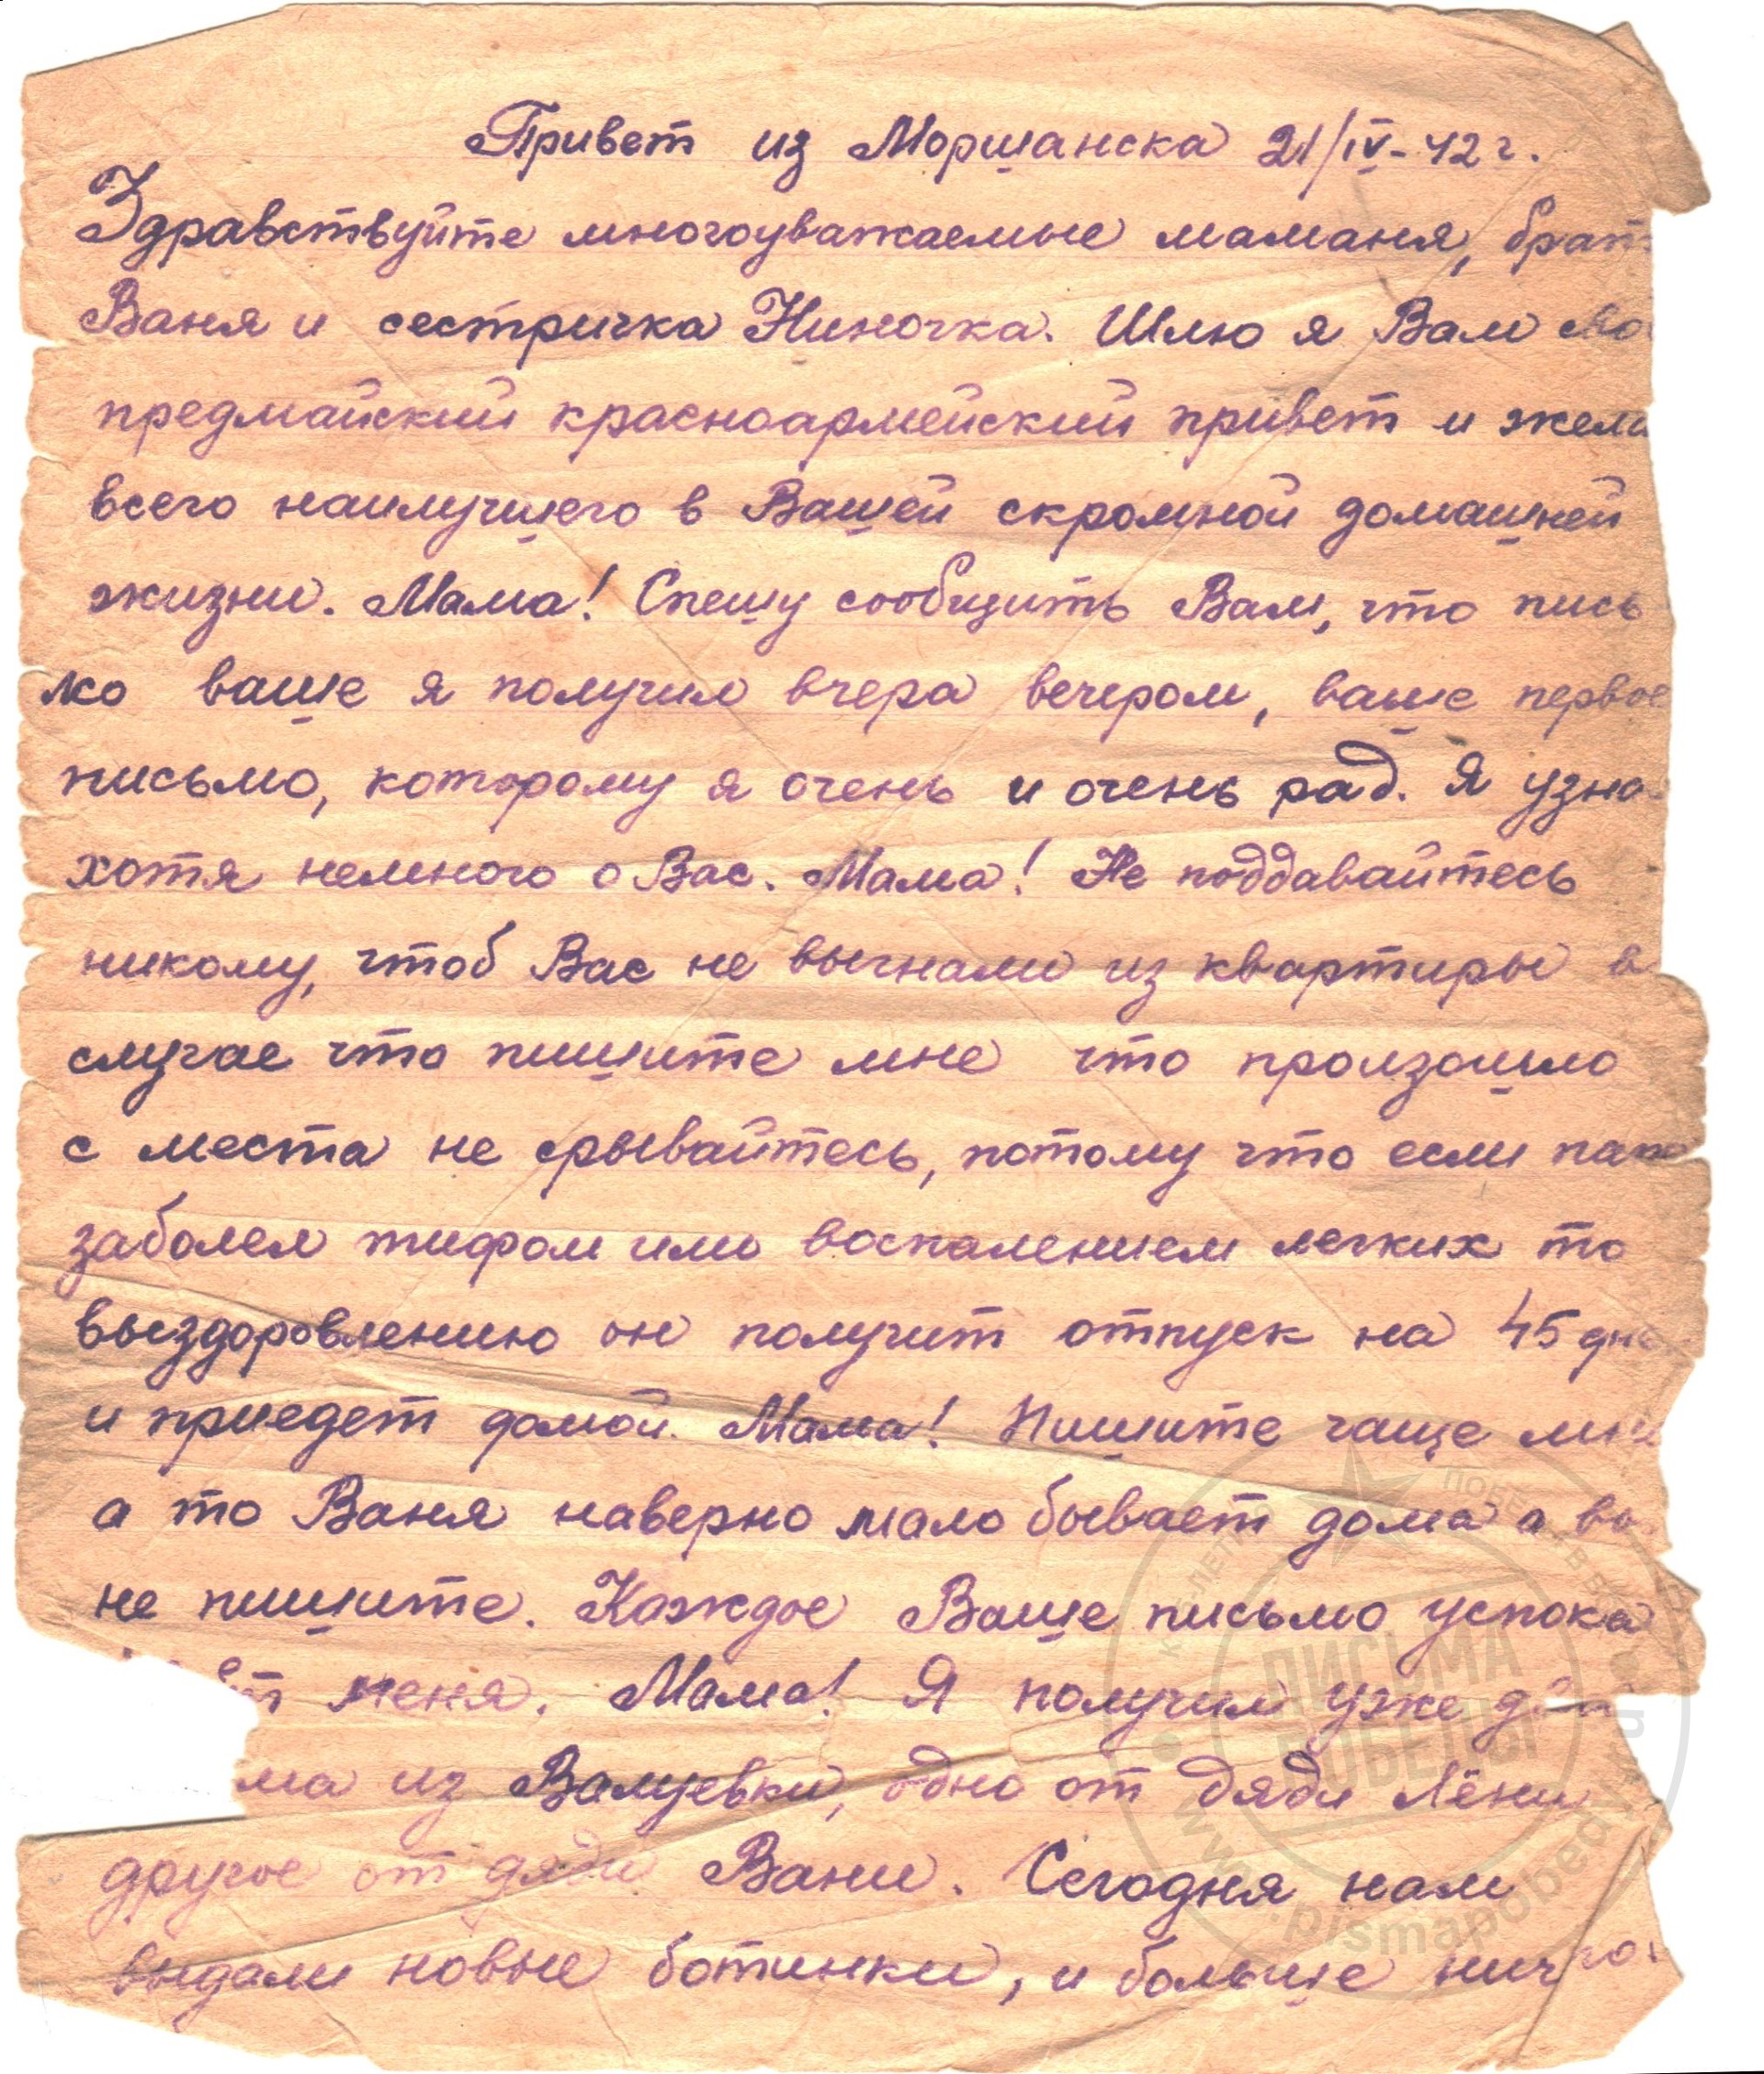 Привет из Моршанска 21/IV-42 г.
Здравствуйте многоуважаемые маманя, брат
Ваня и сестричка Ниночка. Шлю я Вам
предмайский красноармейский привет и жела
всего наилучшего в Вашей скромной домашней
жизни. Мама! Спешу сообщить Вам, что пись
мо ваше я получил вчера вечером, ваше первое
письмо, которому я очень и очень рад. Я узна
хотя немного о Вас. Мама! Не поддавайтесь
никому, чтоб Вас не выгнали из квартиры в
случае что пишите мне что произошло
с места не срывайтесь, потому что если папа
заболел тифом или воспалением легких то
выздоровлению он получит отпуск на 45 дне
и приедет домой. Мама! Пишите чаще мне
а то Ваня наверно мало бывает дома а вы
не пишите. Каждое Ваше письмо успока
ет меня. Мама! Я получил уже два
ма из Валуевки, одно от дяди Лёни
другое от дяди Вани. Сегодня нам
выдали новые ботинки, и больше ничго
ПИСЬМА
ПОБЕДЫ
www.pismapobedy.ru